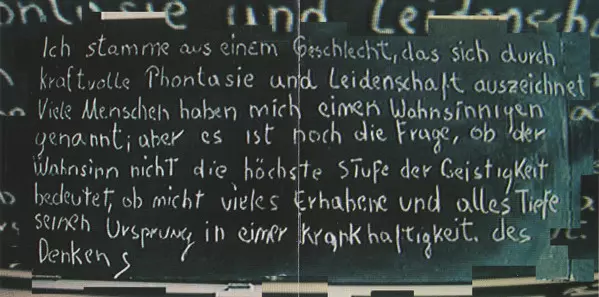 Ich stamme aus einem Geschlecht, das sich durch
kraftvolle Phontasie und Leidenschaft auszeichnet
Viele Menschen haben mich einen Wahnsinnigen
genannt; aber es ist noch die Frage, ob der
Wahnsinn nicht die höchste Stufe der Geistigkeit
bedeutet, ob nicht vieles Erhabene und alles Tiefe
seinen Ursprung in einer krankhaftigkeit. des
Denkens